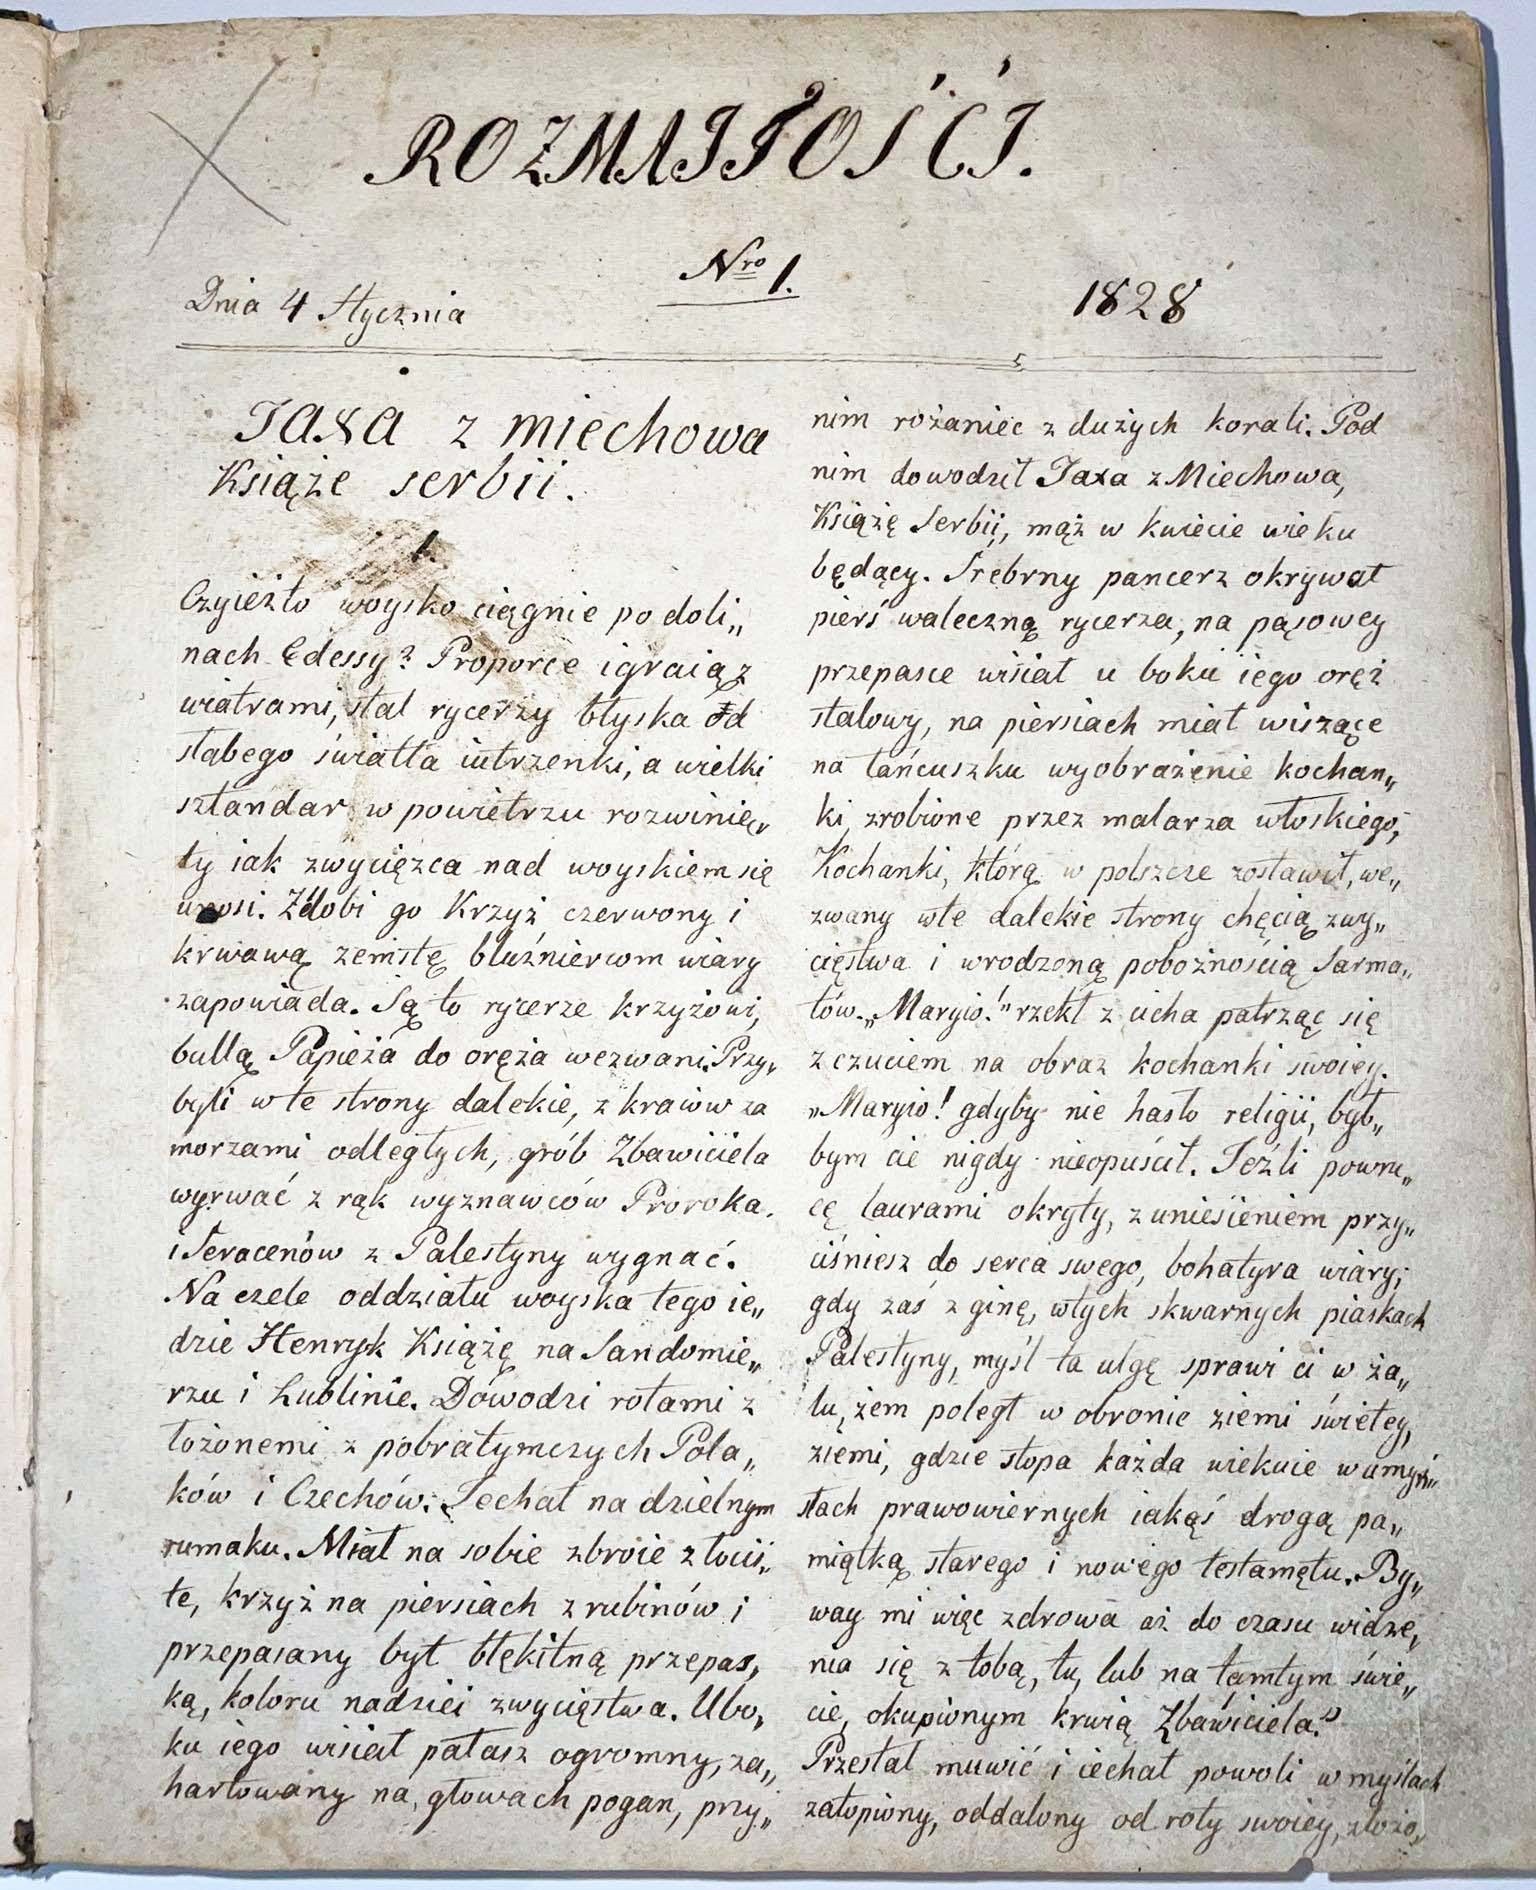 ROZMAITOŚCI.
Nro 1.
Dnia 4 Stycznia
1828
Jaxa z miechowa
Książe serbii.
1.
Czyieżto woysko ciągnie po doli„
nach Edessy? Proporce igraią z
wiatrami, stal rycerzy błyska od
słabego światła iutrzenki, a wielki
sztandar w powietrzu rozwinię„
ty iak zwycięzca nad woyskiem się
unosi. Zdobi go Krzyż czerwony i
krwawą zemstę bluźniercom wiary
zapowiada. Są to rycerze krzyżowi,
bullą Papieża do oręża wezwani. Przy„
byli w te strony dalekie, z kraiów za
morzami odległych, grób Zbawiciela
wyrwać z rąk wyznawców Proroka.
i Seracenów z Palestyny wygnać.
Na czele oddziału woyska tego ie„
dzie Henryk Książę na Sandomie„
rzu i Lublinie. Dowodzi rotami z
łożonemi z pobratymczych Pola„
ków i Czechów. Jechał na dzielnym
rumaku. Miał na sobie zbroie złocis„
te, krzyż na piersiach z rubinów i
przepasany był błękitną przepas„
ką, koloru nadziei zwycięstwa. Ubo„
ku iego wisiał pałasz ogromny, za„
hartowany na głowach pogan, przy„
nim rożaniec z dużych korali. Pod
nim dowodził Jaxa z Miechowa,
Książę Serbii, mąż w kwiecie wieku
będący. Srebrny pancerz okrywał
pierś waleczną rycerza, na pąsowey
przepasce wisiał u boku iego oręż
stalowy, na piersiach miał wiszące
na łańcuszku wyobrażenie kochan„
ki, zrobione przez malarza włoskiego,
Kochanki, którą w polszcze zostawił, we„
zwany w te dalekie strony chęcią zwy„
cięstwa i wrodzoną pobożnością Sarma„
tów. „Maryio!" rzekł z cicha patrząc się
z czuciem na obraz kochanki swoiey.
„Maryio! gdyby nie hasło religii, był„
bym cie nigdy nieopuścił. Jeźli powru„
cę laurami okryty, z uniesieniem przy„
ciśniesz do serca swego, bohatyra wiary;
gdy zaś zginę, wtych skwarnych piaskach
Palestyny, myśl ta ulgę sprawi ci w ża„
lu, żem poległ w obronie ziemi świetey,
ziemi, gdzie stopa każda wiekuie w umy„
słach prawowiernych iakąś drogą pa„
miątką starego i nowego testamętu. By„
way mi więc zdrowa aż do czasu widze„
nia się z tobą, tu, lub na tamtym świe„
cie, okupionym krwią Zbawiciela."
Przestał muwić i iechał powoli w myślach
zatopiony, oddalony od roty swoiey, złożo„